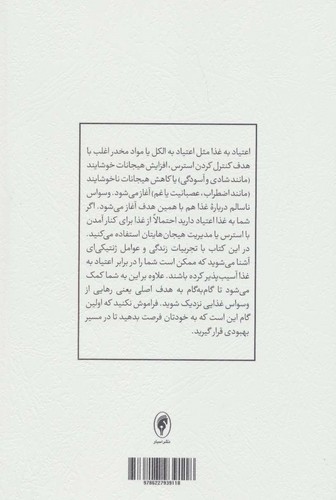 اعتیاد به غذا مثل اعتیاد به الکل یا مواد مخدر اغلب با
هدف کنترل کردن استرس، افزایش هیجانات خوشایند
(مانند شادی و آسودگی) یا کاهش هیجانات ناخوشایند
(مانند اضطراب، عصبانیت یا غم) آغاز می‌شود. وسواس
ناسالم دربارهٔ غذا هم با همین هدف آغاز می‌شود. اگر
شما به غذا اعتیاد دارید احتمالاً از غذا برای کنار آمدن
با استرس یا مدیریت هیجان‌هایتان استفاده می‌کنید.
در این کتاب با تجربیات زندگی و عوامل ژنتیکی‌ای
آشنا می‌شوید که ممکن است شما را در برابر اعتیاد به
غذا آسیب‌پذیر کرده باشند. علاوه بر این به شما کمک
می‌شود تا گام‌به‌گام به هدف اصلی یعنی رهایی از
وسواس غذایی نزدیک شوید. فراموش نکنید که اولین
گام این است که به خودتان فرصت بدهید تا در مسیر
بهبودی قرار گیرید.
نشر اسبار
9786227939118